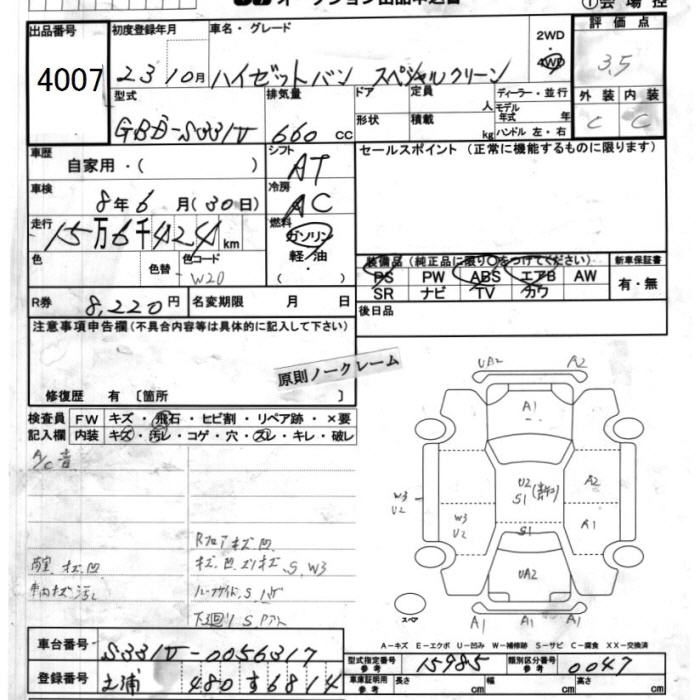 オークション出品申込書
①会場控
出品番号
4007
初度登録年月
23 10月
車名・グレード
ハイゼットバン スペシャルクリーン
2WD
4WD
評価点
3.5
型式
GBD-S331V
排気量
660 cc
ドア
形状
定員
人
積載
kg
ディーラー・並行
モデル年式 年
ハンドル 左・右
外装 内装
C C
車歴
自家用・( )
シフト
AT
セールスポイント (正常に機能するものに限ります)
車検
8年6月(30日)
冷房
AC
走行
15万6千424km
燃料
ガソリン
軽/油
( )
色
色替
色コード
W20
装備品 (純正品に限り○をつけてください)
新車保証書
PS PW ABS エアB AW
有・無
SR ナビ TV カワ
R券
8,220円
名変期限 月 日
後日品
注意事項申告欄(不具合内容等は具体的に記入して下さい)
原則ノークレーム
修復歴 有 [箇所 ]
検査員
記入欄
FW キズ・飛石・ヒビ割・リペア跡・×要
内装 キズ・汚レ・コゲ・穴・スレ・キレ・破レ
A/C 音
Rフロアキズ凹
荷室 キズ凹
キズ、凹、ズリキズ、S、W3
車内キズ汚レ
下廻りS
UA2
A2
A1
A2
U2
S1
W3
U2
W3
U2
A1
S1
UA2
A1 A1 A1
スペア
A-キズ E-エクボ U-凹み W-補修跡 S-サビ C-腐食 XX-交換済
車台番号
S331V-0056317
登録番号
土浦 480 す 6814
型式指定番号
参考
15985
類別区分番号
参考
0047
車庫証明用
参考
長さ cm
幅 cm
高さ cm